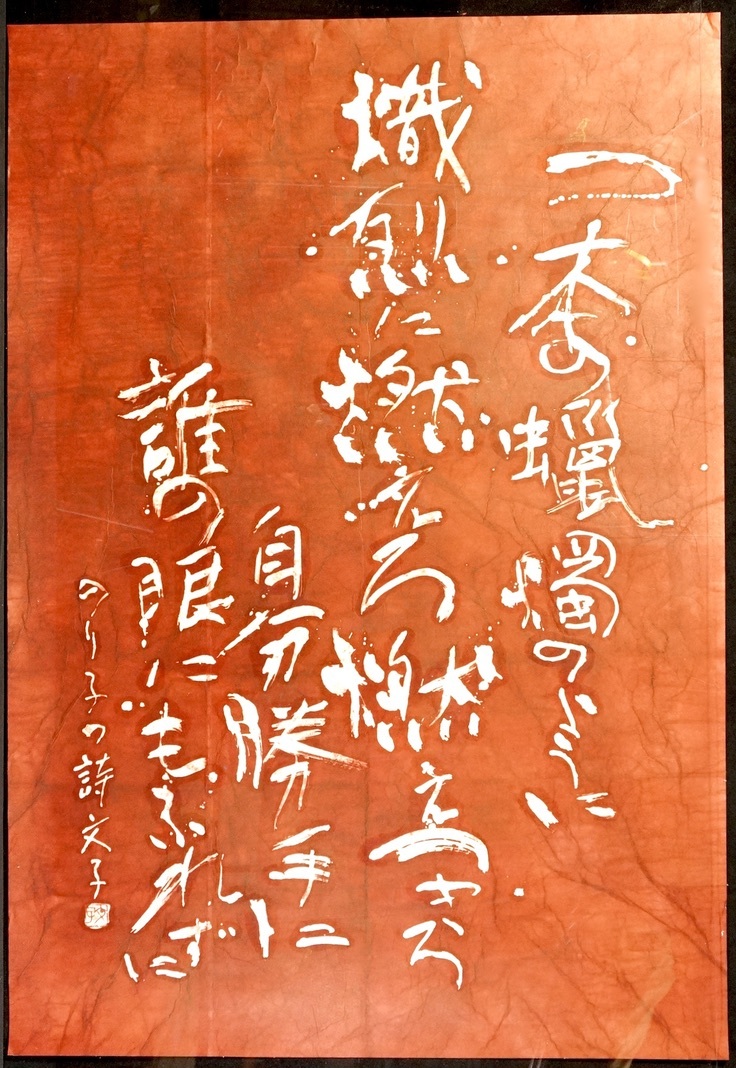 一本の蠟燭のように
熾烈に燃えろ燃えつきろ
自分勝手に
誰の眼にもふれずに
のり子の詩 文子